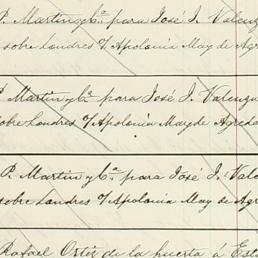 P. Martin y Ca. para José J. Valenzu
sobre Londres o/ Apolonia May de Agre
P. Martin y Ca. para José J. Valenzu
sobre Londres o/ Apolonia May de Agreda
P. Martin y Ca. para José J. Vale
sobre Londres o/ Apolonia May de Agr
Rafael Ortiz de la huerta á Est